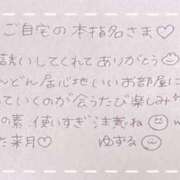 ご自宅の本指名さま♡
誘いしてくれてありがとう
んどん居心地いいお部屋に
っていくのが会うたび楽しみ
の素、使いすぎ注意ね
た来月♡ ゆずみ